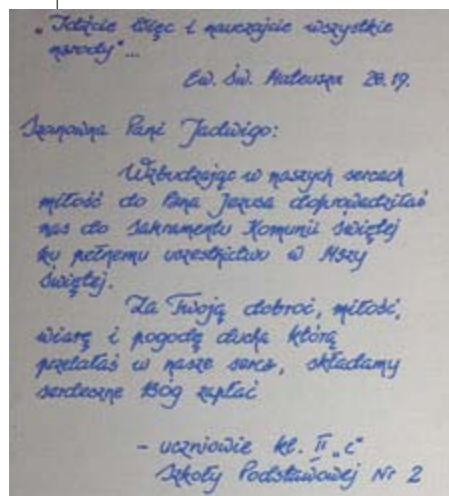 „Idźcie więc i nauczajcie wszystkie
narody"...
Ew. św. Mateusza 28.19.
Szanowna Pani Jadwigo:
Wzbudzając w naszych sercach
miłość do Pana Jezusa doprowadziłaś
nas do Sakramentu Komunii Świętej
ku pełnemu uczestnictwu w Mszy
Świętej.
Za Twoją dobroć, miłość,
wiarę i pogodę ducha którą
przelałaś w nasze serca, składamy
serdeczne Bóg zapłać
- uczniowie kl. II „c"
Szkoły Podstawowej Nr 2